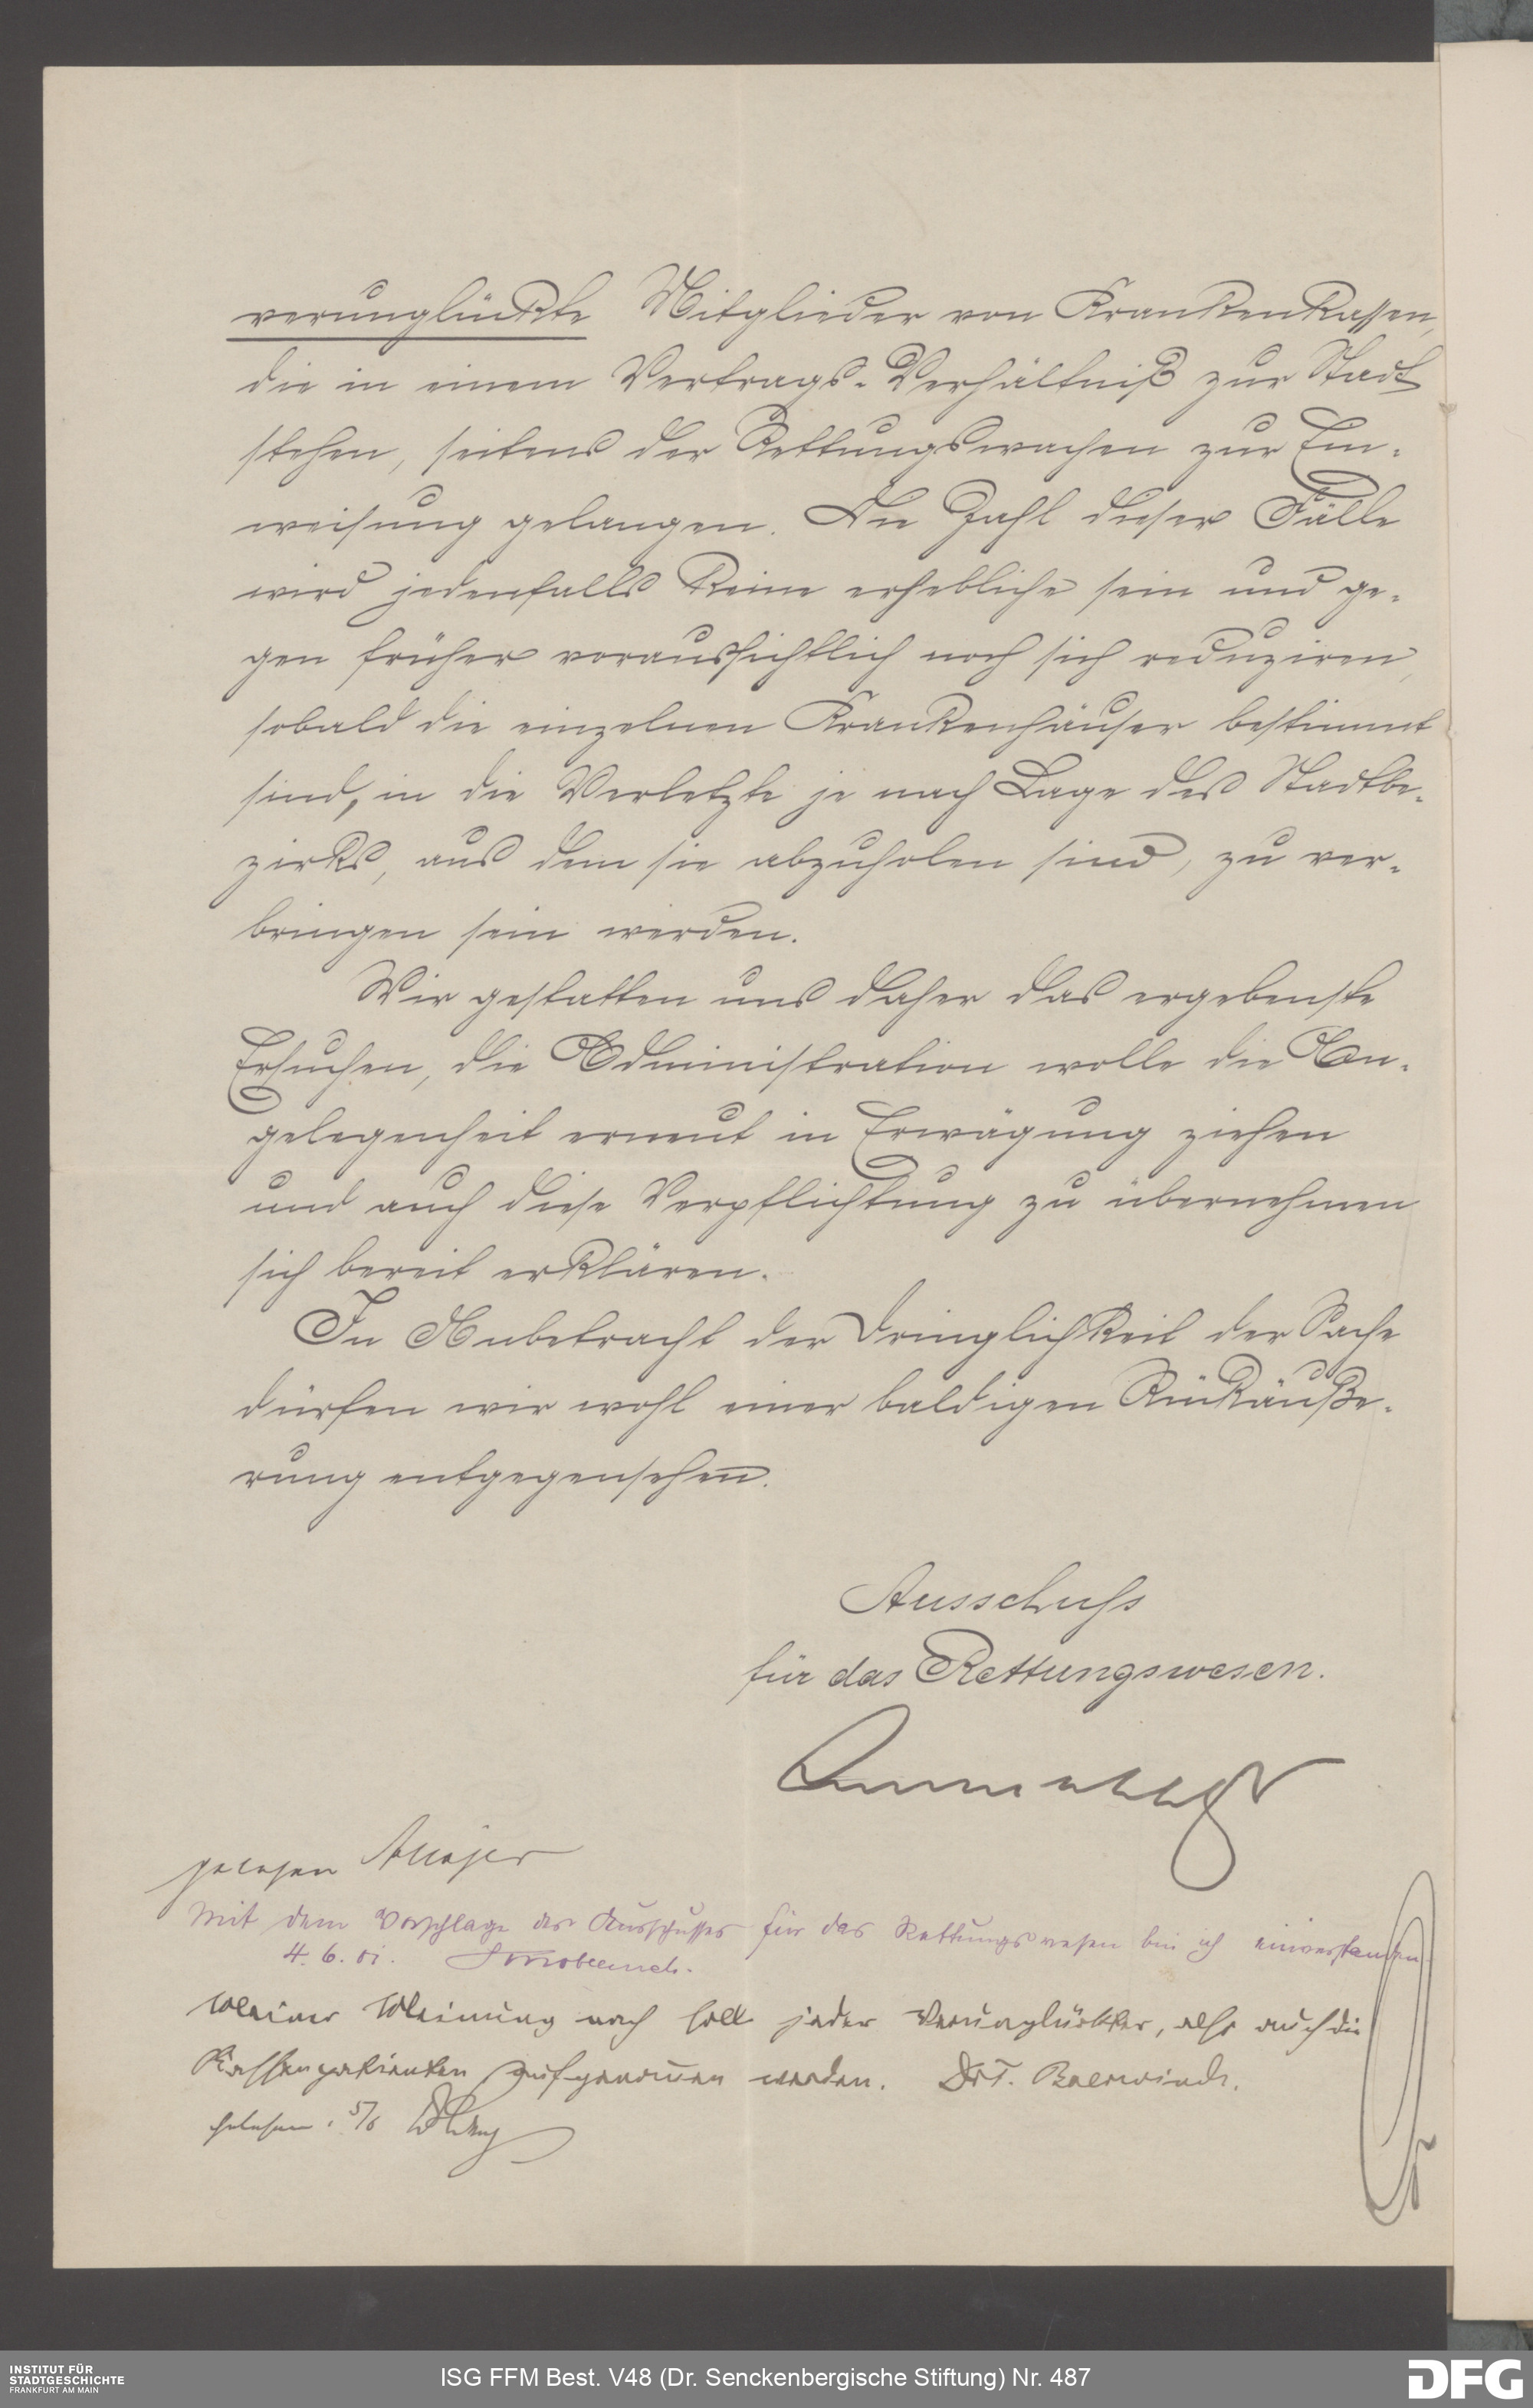 verunglückte Mitglieder von Krankenkassen,
die in einem Vertrags-Verhältniß zur Stadt
stehen, seitens der Rettungswachen zur Ein-
weisung gelangen. Die Zahl dieser Fälle
wird jedenfalls keine erhebliche sein und ge-
gen früher voraussichtlich noch sich reduziren,
sobald die einzelnen Krankenhäuser bestimmt
sind, in die Verletzte je nach Lage des Stadtbe-
zirks, aus dem sie abzuholen sind, zu ver-
bringen sein werden.
Wir gestatten uns daher das ergebenste
Ersuchen, die Administration wolle die An-
gelegenheit erneut in Erwägung ziehen
und auch diese Verpflichtung zu übernehmen
sich bereit erklären.
In Anbetracht der Dringlichkeit der Sache
dürfen wir wohl einer baldigen Rückäuße-
rung entgegensehen.
Ausschuss
für das Rettungswesen.
gelesen
Mit dem Vorschlage des Ausschusses für das Rettungswesen bin ich einverstanden.
4.6.01.
Meiner Meinung nach soll jeder Verunglückter, also auch die
Kassenpatienten aufgenommen werden. Dr. F. Baerwindt.
gelesen. 5/6
INSTITUT FÜR
STADTGESCHICHTE
FRANKFURT AM MAIN
ISG FFM Best. V48 (Dr. Senckenbergische Stiftung) Nr. 487
DFG